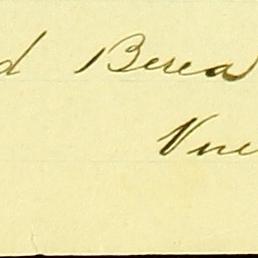 d Berea
Vne